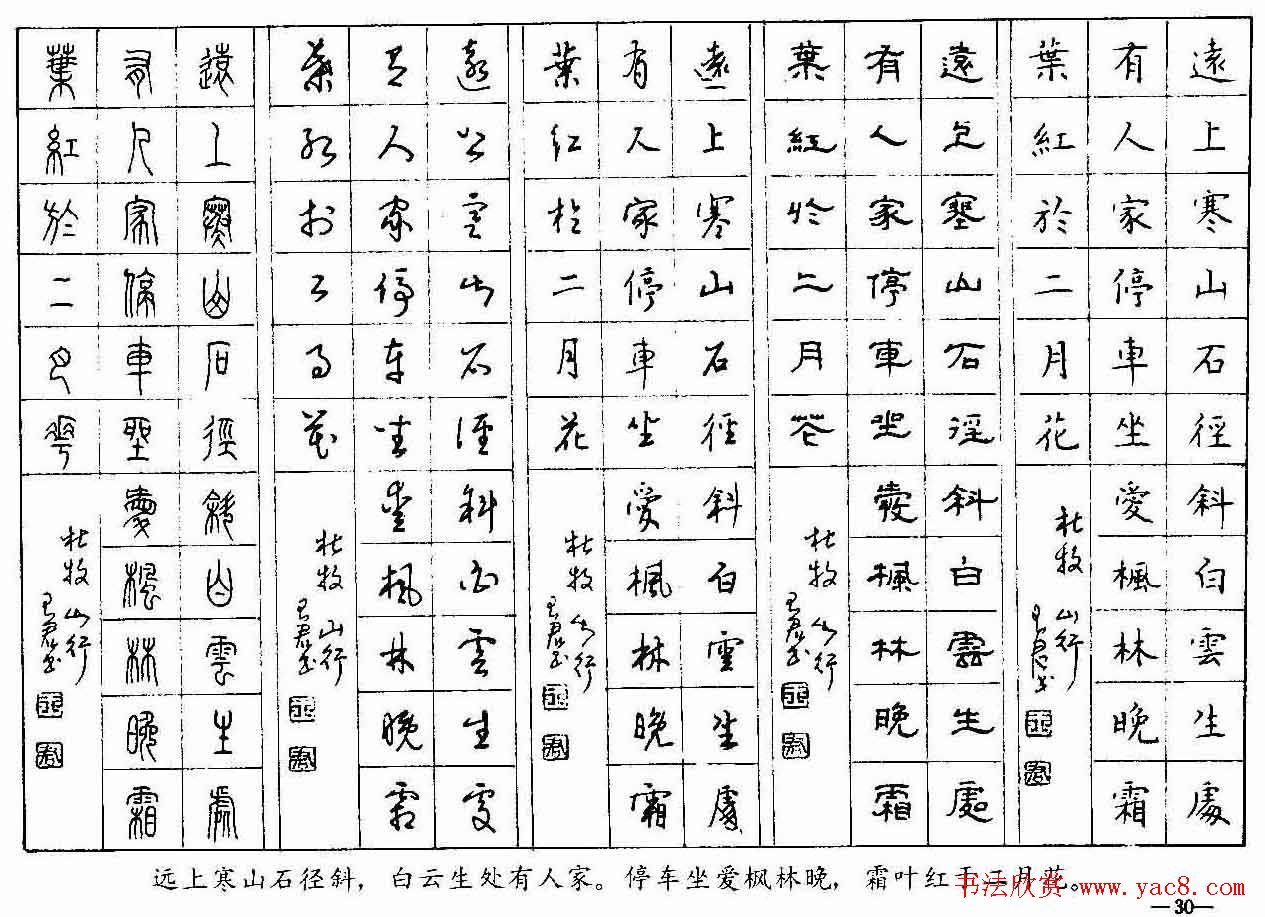 遠上寒山石徑斜白雲生處
有人家停車坐愛楓林晚霜
葉紅於二月花
杜牧 山行
王君書
遠上寒山石徑斜白雲生處
有人家停車坐愛楓林晚霜
葉紅於二月花
杜牧 山行
王君書
遠上寒山石徑斜白雲生處
有人家停車坐愛楓林晚霜
葉紅於二月花
杜牧 山行
王君書
遠上寒山石徑斜白雲生處
有人家停車坐愛楓林晚霜
葉紅於二月花
杜牧 山行
王君書
遠上寒山石徑斜白雲生處
有人家停車坐愛楓林晚霜
葉紅於二月花
杜牧 山行
王君書
远上寒山石径斜，白云生处有人家。停车坐爱枫林晚，霜叶红于二月花。
书法欣赏www.yac8.com
—30—